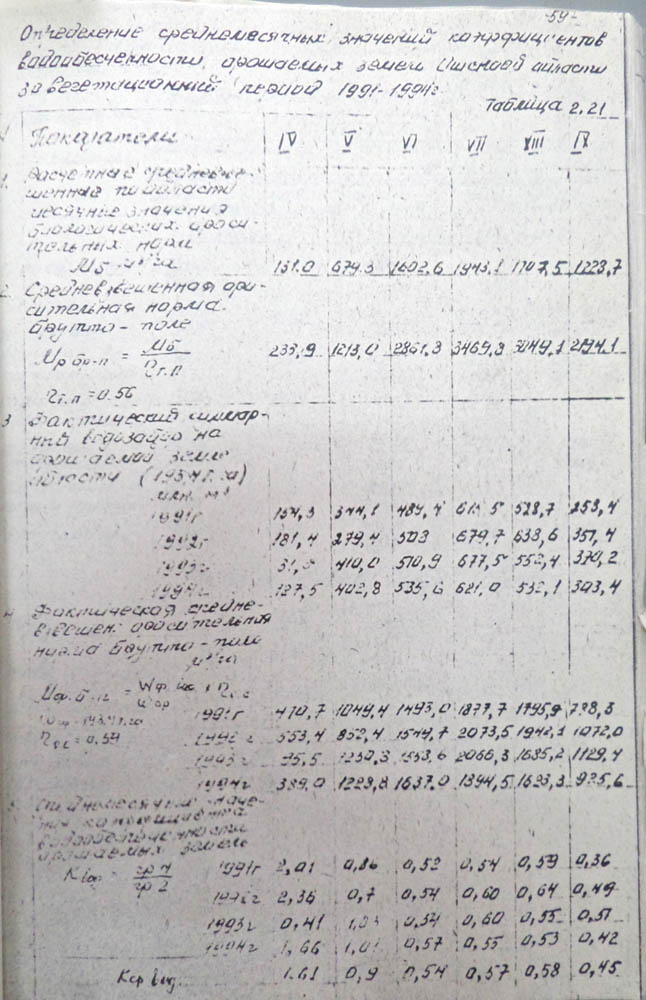 -54-
Определение среднемесячных значений коэффициентов
водообеспеченности орошаемых земель Ошской области
за вегетационный период 1991-1994г
Таблица 2.21
Показатели IV V VI VII XIII IX
1. Расчетные средневзве-
шенные по области
месячные значения
биологических ороси-
тельных норм
Мб м³/га 131.0 679.3 1602.6 1943.1 1707,5 1228,7
2. Средневзвешенная оро-
сительная норма
брутто-поле
Мр бр-п = Мб / ηт.п 233,9 1213,0 2861.3 3469,3 3049,1 2194.1
ηт.п = 0.56
3 Фактический суммар-
ный водозабор на
орошаемой земле
области (193,4 т. га)
млн. м³
1991г 154,3 344,1 489,4 615,5 528,7 258,4
1992г 181,4 279,4 503 679,7 633,6 351,4
1993г 410,0 510,9 677,5 552,4 370,2
1994г 127,5 402,8 535,6 621,0 532,1 303,4
4 Фактическая средне-
взвешен. оросительная
норма брутто-поле
м³/га
1991г 470,7 1049,4 1493,0 1877,7 1795,9 738,3
1992г 553,4 852,4 1549,7 2073,5 1942,1 1072,0
ηос = 0,59
1993г 1250,3 1553,6 2066,3 1685,2 1129,4
1994г 389,0 1228,8 1637,0 1894,5 1623,3 925,6
5 Среднемесячные значе-
ния коэффициента
водообеспеченности
орошаемых земель
= гр 4 / гр 2 1991г 2,01 0,86 0,52 0,54 0,59 0,36
1992г 2,36 0,7 0,54 0,60 0,64 0,49
1993г 0,41 1,03 0,54 0,60 0,55 0,51
1994г 1,66 1,01 0,57 0,55 0,53 0,42
Кср вод. 1.61 0,9 0,54 0,57 0,58 0,45